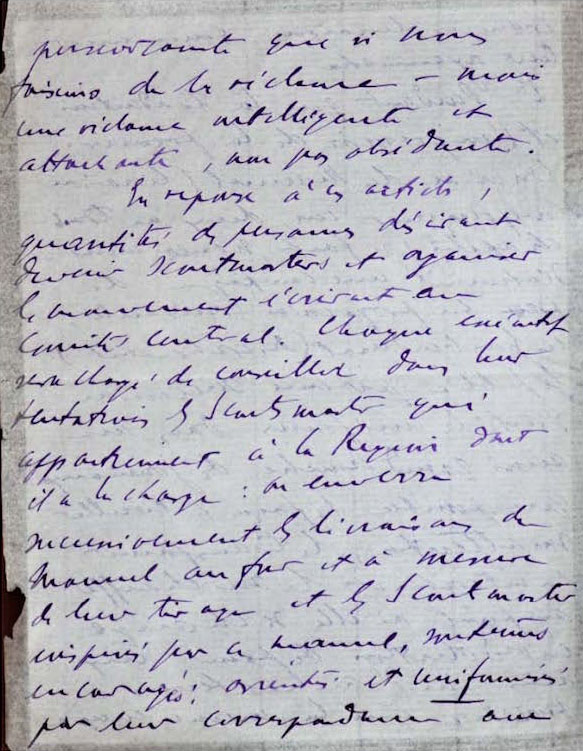 que si nous
faisions de la réclame – mais
une réclame intelligente et
attachante, non pas obsédante.
En réponse à ces articles,
quantités de personnes désirant
devenir Scoutmasters et organiser
le mouvement écriront au
Comité Central. Chaque exécutif
sera chargé de conseiller dans leur
tentatives les Scoutmasters qui
appartiennent à la Région dont
il a la charge : on enverra
successivement les livraisons du
Manuel au fur et à mesure
de leur tirage et les Scoutmasters
inspirés par ce manuel, soutenus
encouragés, orientés et uniformisés
par leur correspondance avec